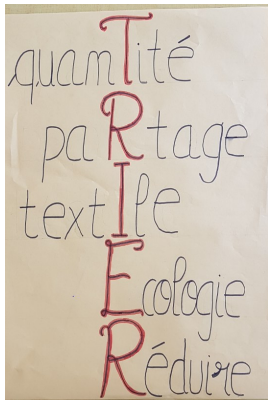 quanTité
paRtage
textIle
Ecologie
Réduire